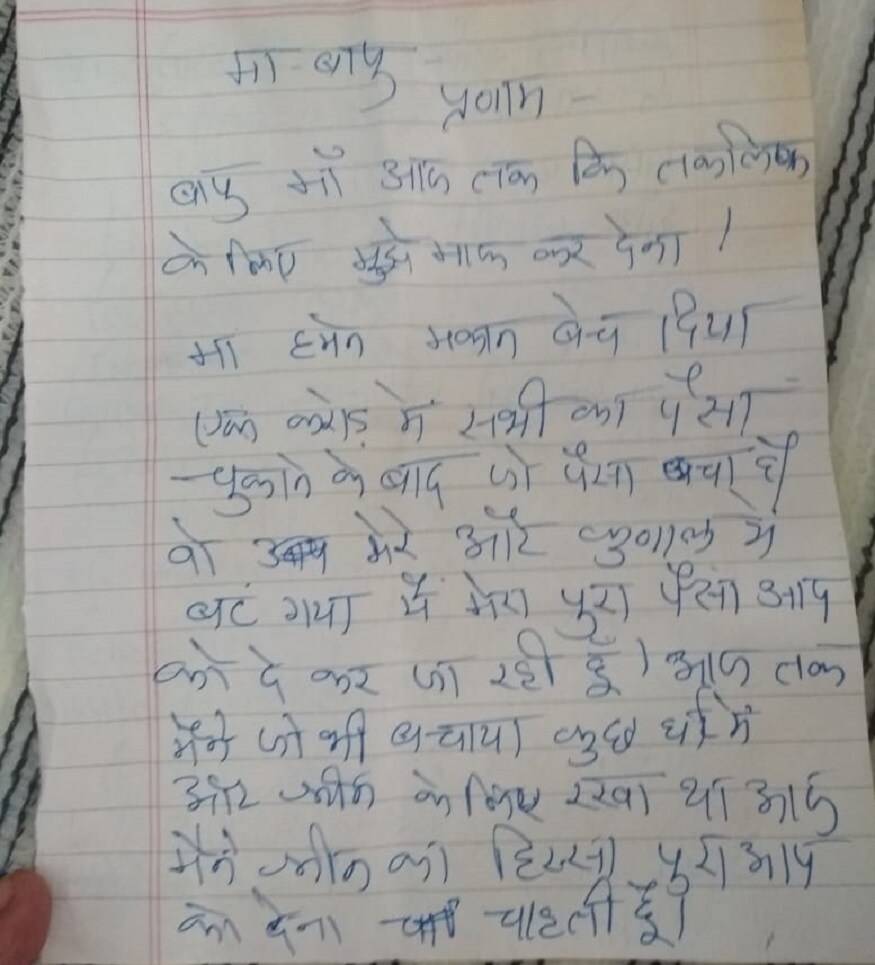 मा-बापु
प्रणाम -
बापु माँ आज तक कि तकलिफ
के लिए मुझे माफ कर देना।
मा हमने मकान बेच दिया
एक करोड़ में सभी का पैसा
चुकाने के बाद जो पैसा बचा है
वो मेरे और कुणाल मे
बट गया मैं मेरा पुरा पैसा आप
को दे कर जा रही हूँ। आज तक
मैने जो भी बचाया कुछ घर में
और के लिए रखा था आज
मैने का हिस्सा पुरा आप
को देना चाहती हूँ।